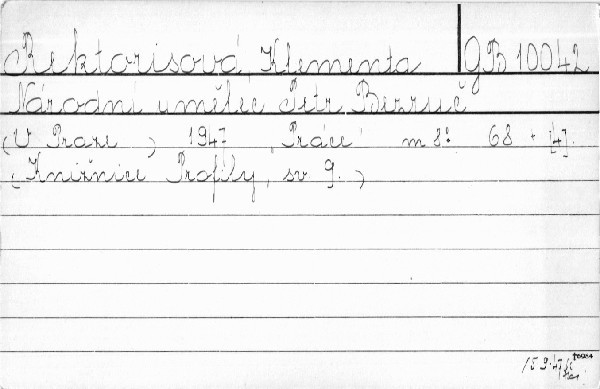 Rektorisová, Klementa GB 10042
Národní umělec Petr Bezruč
(V Praze) 1947 "Práce" m 8° 68 + [4].
(Knižnice Profily, sv 9.)